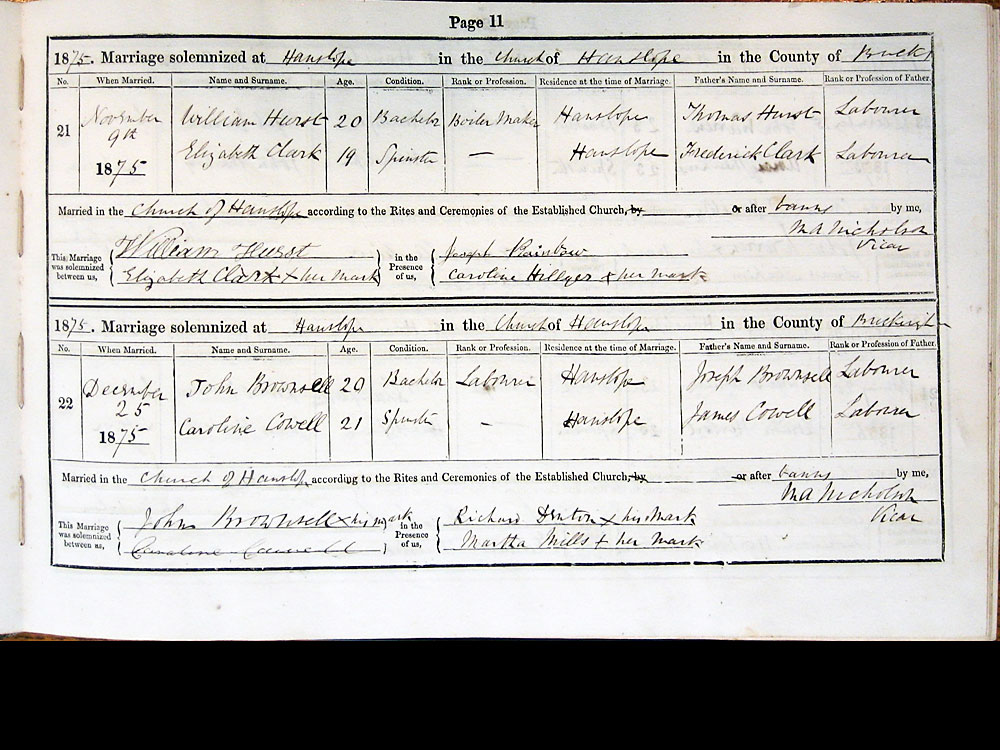 Page 11
1875. Marriage solemnized at Hanslope in the Church of Hanslope in the County of Bucks
No. When Married. Name and Surname. Age. Condition. Rank or Profession. Residence at the time of Marriage. Father's Name and Surname. Rank or Profession of Father.
21 November 9th 1875 William Hurst 20 Bachelor Boiler Maker Hanslope Thomas Hurst Labourer
Elizabeth Clark 19 Spinster — Hanslope Frederick Clark Labourer
Married in the Church of Hanslope according to the Rites and Ceremonies of the Established Church, by or after banns by me,
M A Nicholson
Vicar
This Marriage was solemnized between us, William Hurst in the Presence of us, Joseph Plainbow
Elizabeth Clark x her mark Caroline Hillyer x her mark
1875. Marriage solemnized at Hanslope in the Church of Hanslope in the County of Buckingh
No. When Married. Name and Surname. Age. Condition. Rank or Profession. Residence at the time of Marriage. Father's Name and Surname. Rank or Profession of Father.
22 December 25 1875 John Brownsell 20 Bachelor Labourer Hanslope Joseph Brownsell Labourer
Caroline Cowell 21 Spinster — Hanslope James Cowell Labourer
Married in the Church of Hanslope according to the Rites and Ceremonies of the Established Church, by or after banns by me,
M A Nicholson
Vicar
This Marriage was solemnized between us, John Brownsell x his mark in the Presence of us, Richard Denton x his mark
Caroline Cowell Martha Mills x her mark